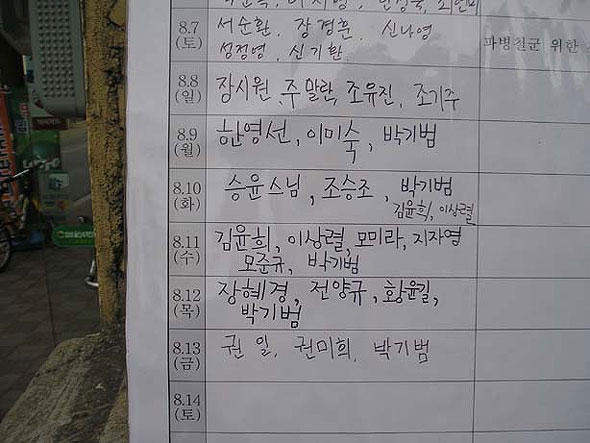 8.7
(토)
서순환, 장경훈, 신나영
성정영, 신기환
파병철군 위한
8.8
(일)
장시원, 주말란, 조유진, 조기주
8.9
(월)
한영선, 이미숙, 박기범
8.10
(화)
승윤스님, 조승조, 박기범
김윤희, 이상렬
8.11
(수)
김윤희, 이상렬, 모미라, 지자영
모준규, 박기범
8.12
(목)
장혜경, 전양규, 황윤길,
박기범
8.13
(금)
권일, 권미희, 박기범
8.14
(토)